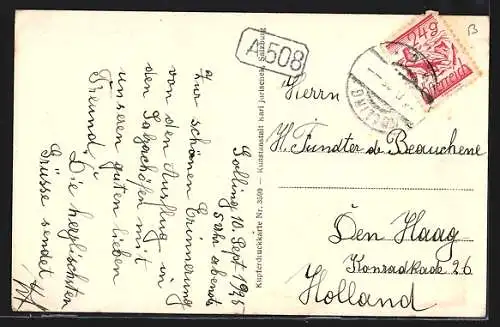 Golling, 10. Sept 1925
abends
Zur schönen Erinnerung
von den Ausflug in
den Salzachöfen mit
unseren guten lieben
Freund,
Die herzlichsten
Grüsse sendet
A 508
Kupferdruckkarte Nr. 3509 — Kunstanstalt Karl Jurischek, Salzburg
24g
GOLLING
B
Herrn
H. Tundter de Beauchene
Den Haag
Konradkade 26
Holland